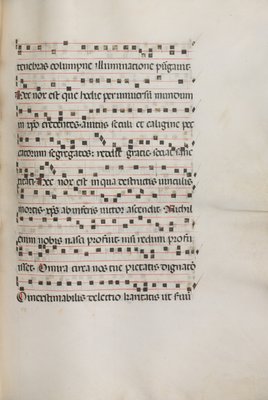 tenebras columpne illuminatione purgauit.
Hec nox est que hodie per uniuersum mundum
in xpo credentes a uiciis seculi et caligine pec
catorum segregatos: reddit gratie. sociat sanc
titati. Hec nox est in qua destructis uinculis
mortis. xps ab inferis uictor ascendit. Nichil
enim nobis nasci profuit. nisi redimi profu
isset. O mira circa nos tue pietatis dignatio
O inextimabilis dilectio karitatis ut seruu